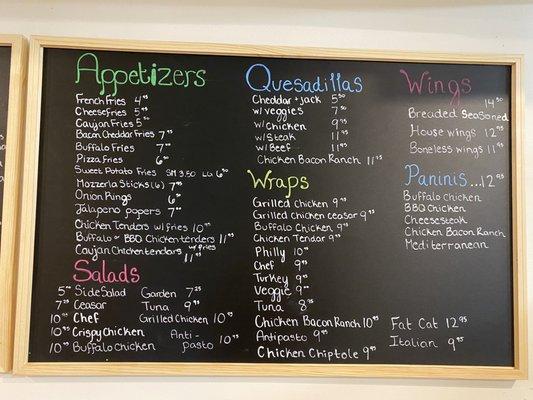 Appetizers
French Fries 4.95
Cheese Fries 5.95
Caujan Fries 5.50
Bacon Cheddar Fries 7.95
Buffalo Fries 7.00
Pizza Fries 6.00
Sweet Potato Fries SM 3.50 LG 6.50
Mozzerla Sticks (6) 7.95
Onion Rings 6.00
Jalapeno poppers 7.00
Chicken Tenders w/ fries 10.95
Buffalo or BBQ Chicken tenders 11.95
Caujan Chicken tenders w/ fries
11.95
Salads
5.00 Side Salad Garden 7.25
7.25 Ceasar Tuna 9.95
10.95 Chef Grilled Chicken 10.95
10.95 Crispy Chicken Anti-
10.50 Buffalo Chicken pasto 10.95
Quesadillas
Cheddar + Jack 5.50
w/ veggies 7.50
w/ Chicken 9.95
w/ Steak 11.95
w/ Beef 11.95
Chicken Bacon Ranch 11.95
Wraps
Grilled Chicken 9.95
Grilled chicken ceasor 9.95
Buffalo Chicken 9.95
Chicken Tendar 9.95
Philly 10.95
Chef 9.95
Turkey 9.95
Veggie 9.00
Tuna 8.95
Chicken Bacon Ranch 10.95
Antipasto 9.95
Chicken Chiptole 9.95
Wings
14.50
Breaded Seasoned
House wings 12.95
Boneless wings 11.95
Paninis...12.95
Buffalo Chicken
BBQ Chicken
Cheesesteak
Chicken Bacon Ranch
Mediterranean
Fat Cat 12.95
Italian 9.95